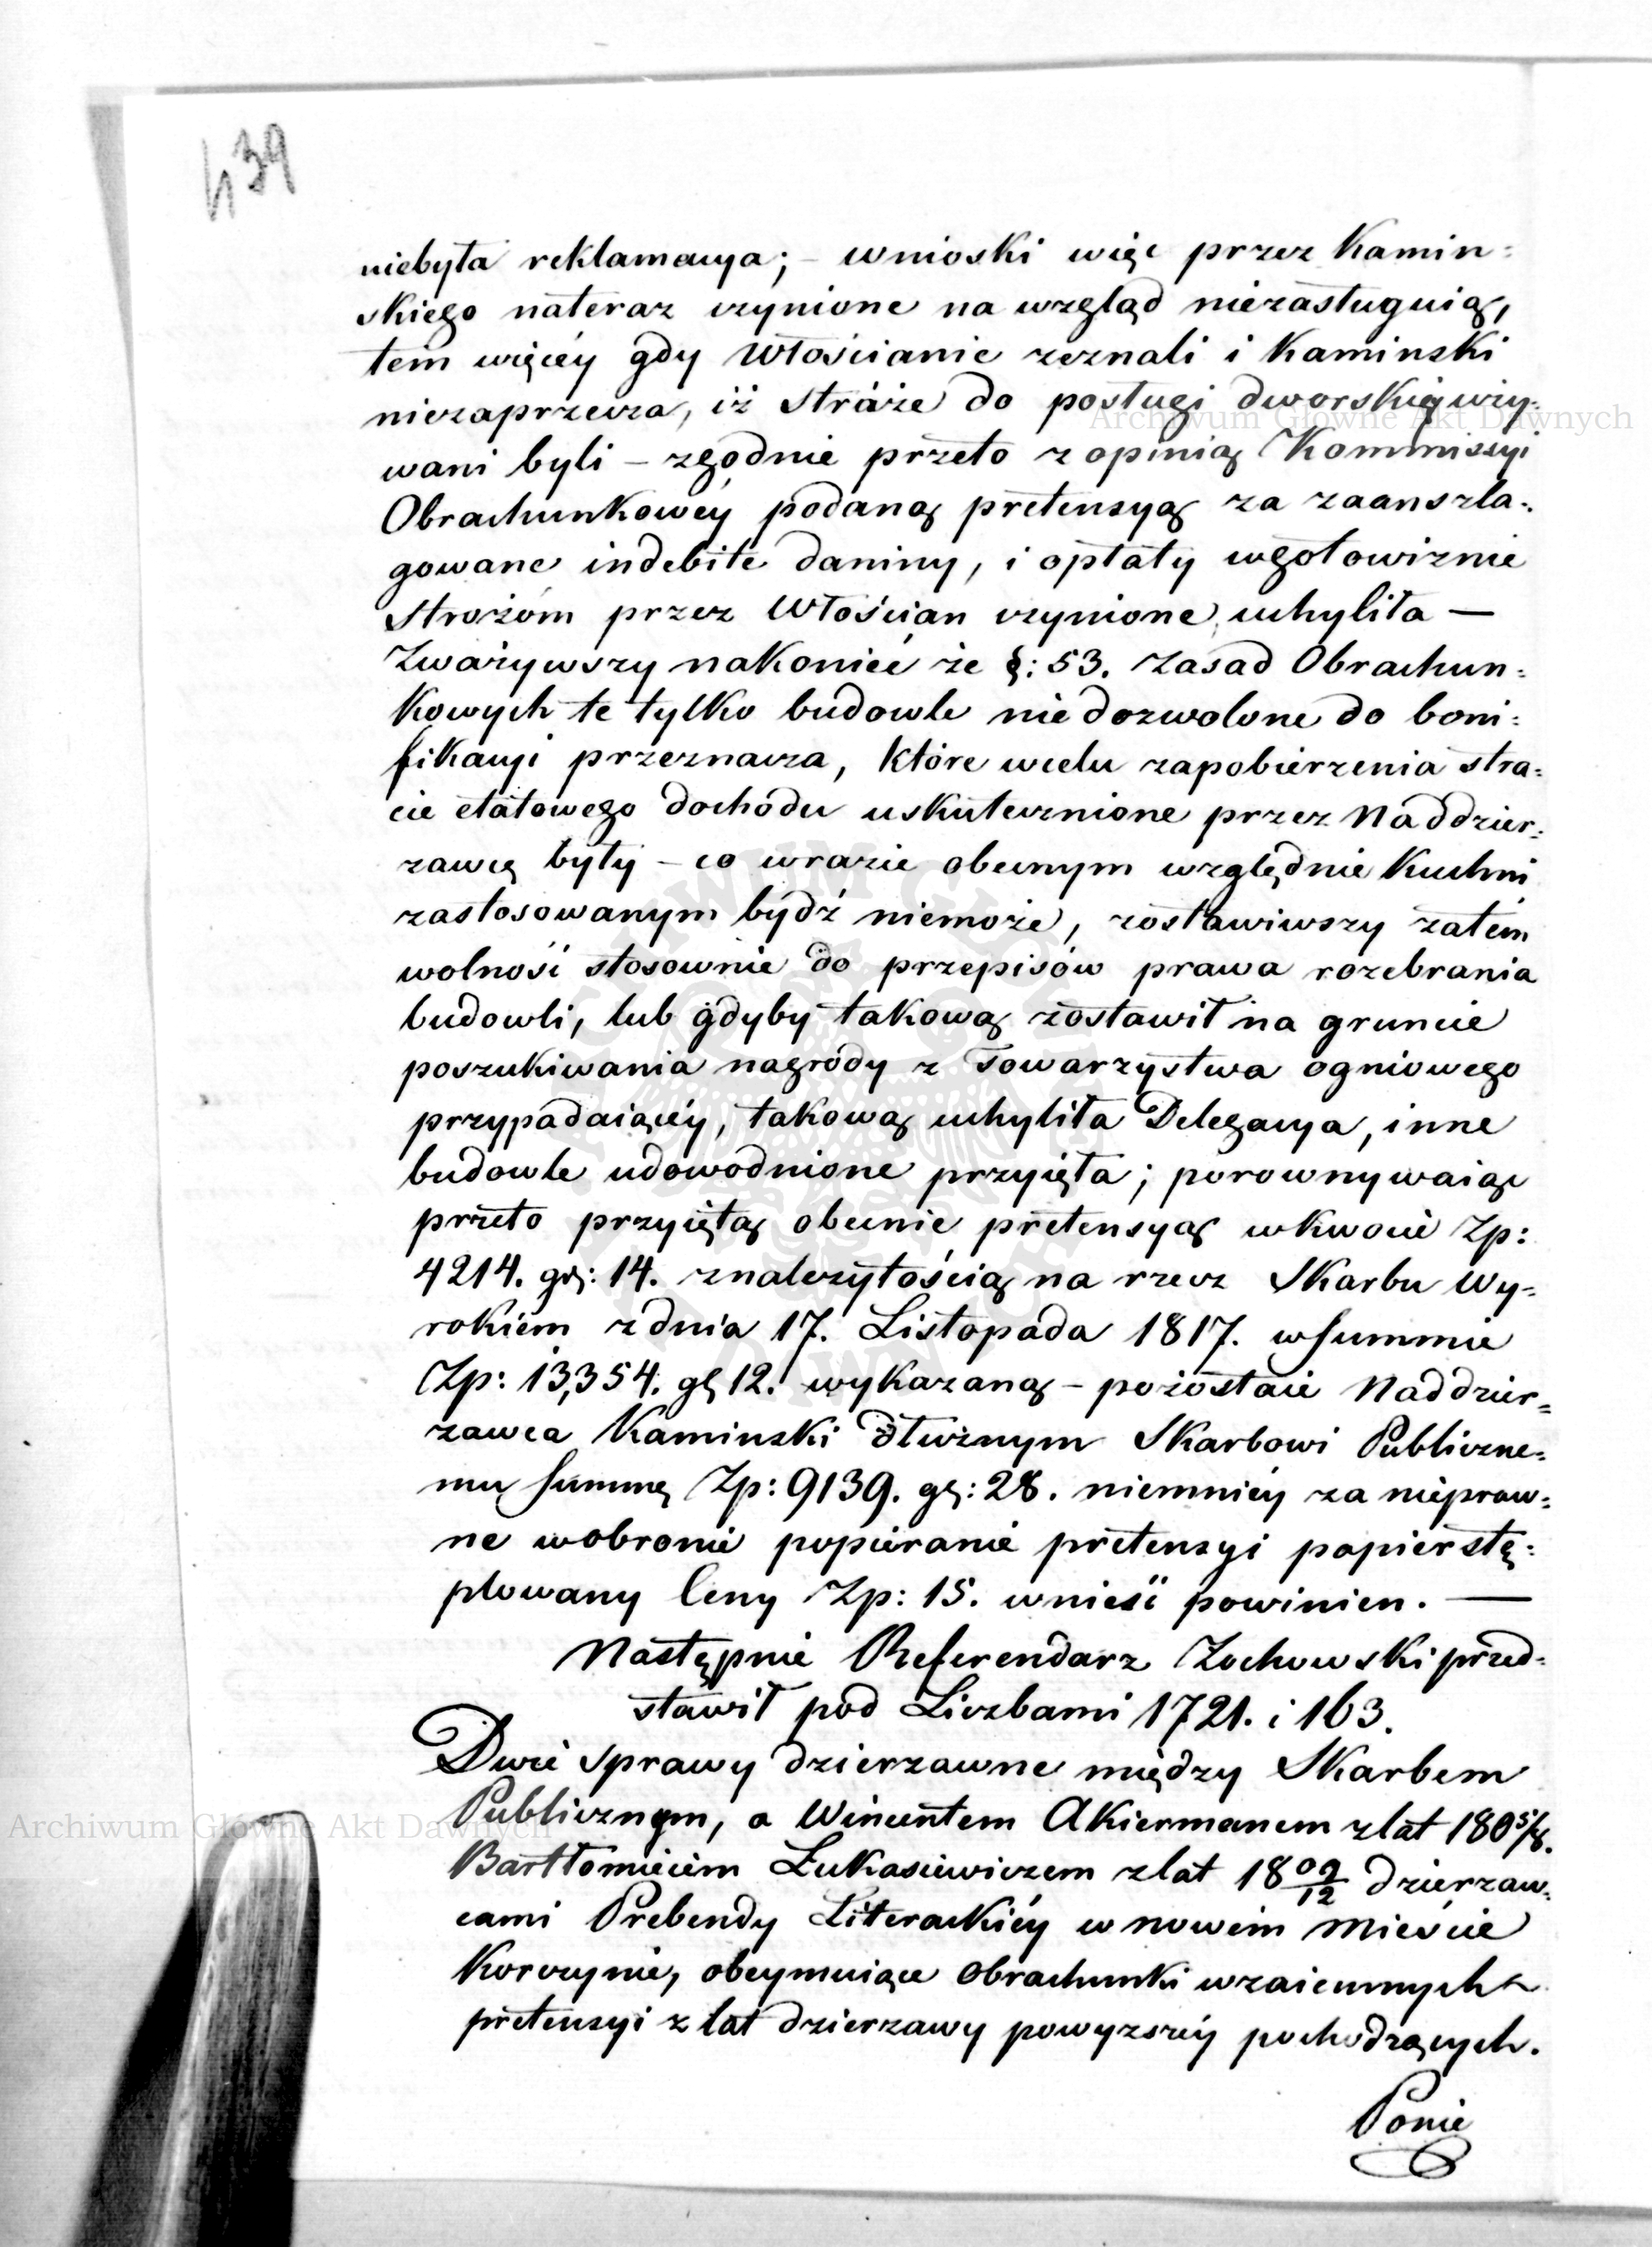 439
niebyła reklamacya; – wnioski więc przez Kamin=
skiego nateraz czynione na wzgląd niezasługuią,
tem więcéy gdy Włościanie zeznali i Kaminski
niezaprzecza, iż stróże do posługi dworskiéy uży=
wani byli – zgodnie przeto z opinią Kommissyi
Obrachunkowéy podaną pretensyą za zaanszla=
gowane indebite daniny, i opłaty wgotowiznie
stróżom przez Włościan czynione uchyliła —
Zważywszy nakoniec że §: 53. Zasad Obrachun=
kowych te tylko budowle niedozwolone do boni=
fikacyi przeznacza, które wcelu zapobieżenia stra=
cie etatowego dochodu uskutecznione przez Naddzier=
zawcę były – co wrazie obecnym względnie Kuchni
zastosowanym bydź niemoże, zostawiwszy zatém
wolność stosownie do przepisów prawa rozebrania
budowli, lub gdyby takową zostawił na gruncie
poszukiwania nagrody z Towarzystwa ogniowego
przypadaiącéy, takową uchyliła Delegacya, inne
budowle udowodnione przyięła; porownywaiąc
przeto przyiętą obecnie pretensyą wkwocie Zp:
4214. gr: 14. znależytością na rzecz Skarbu Wy=
rokiem zdnia 17. Listopada 1817. wsummie
Zp: 13,354. gr 12. wykazaną – pozostaie Naddzier=
zawca Kaminski dłużnym Skarbowi Publiczne=
mu Summę Zp: 9139. gr: 28. niemniéy za niepraw=
ne wobronie popieranie pretensyi papier stę=
plowany Ceny Zp: 15. wnieść powinien. —
Następnie Referendarz Zochowski przed=
stawił pod Liczbami 1721. i 163.
Dwie sprawy dzierzawne między Skarbem
Publicznym, a Wincentem Akiermanem zlat 180 5/8.
Bartłomieiem Łukasiewiczem zlat 18 09/12 dzierzaw=
cami Prebendy Literackiéy w nowém Mieście
Korczynie, obeymuiące Obrachunki wzaiemnych
pretensyi z lat dzierzawy powyzszéy pochodzących.
Ponie
Archiwum Główne Akt Dawnych
Archiwum Główne Akt Dawnych